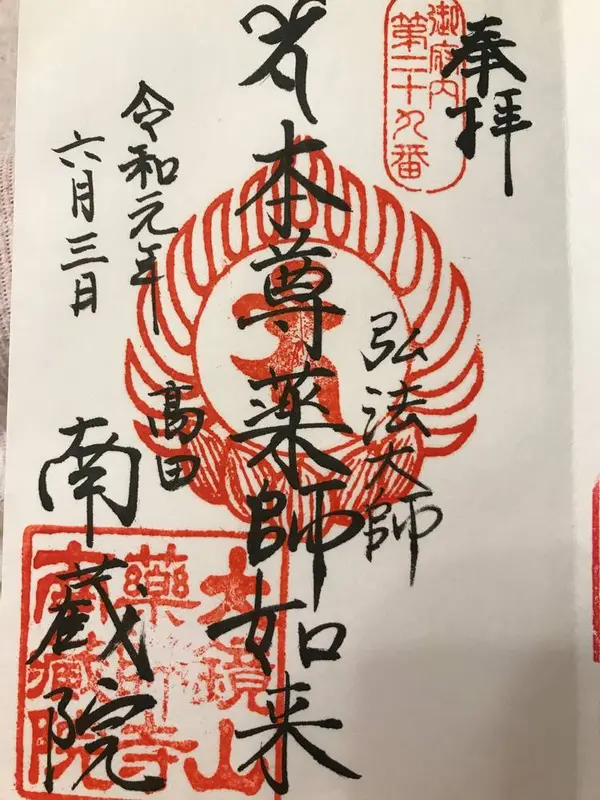 奉拝
御府内
第二十九番
弘法大師
本尊薬師如来
令和元年
六月三日
高田
南蔵院
大鏡山
藥師寺
南藏院